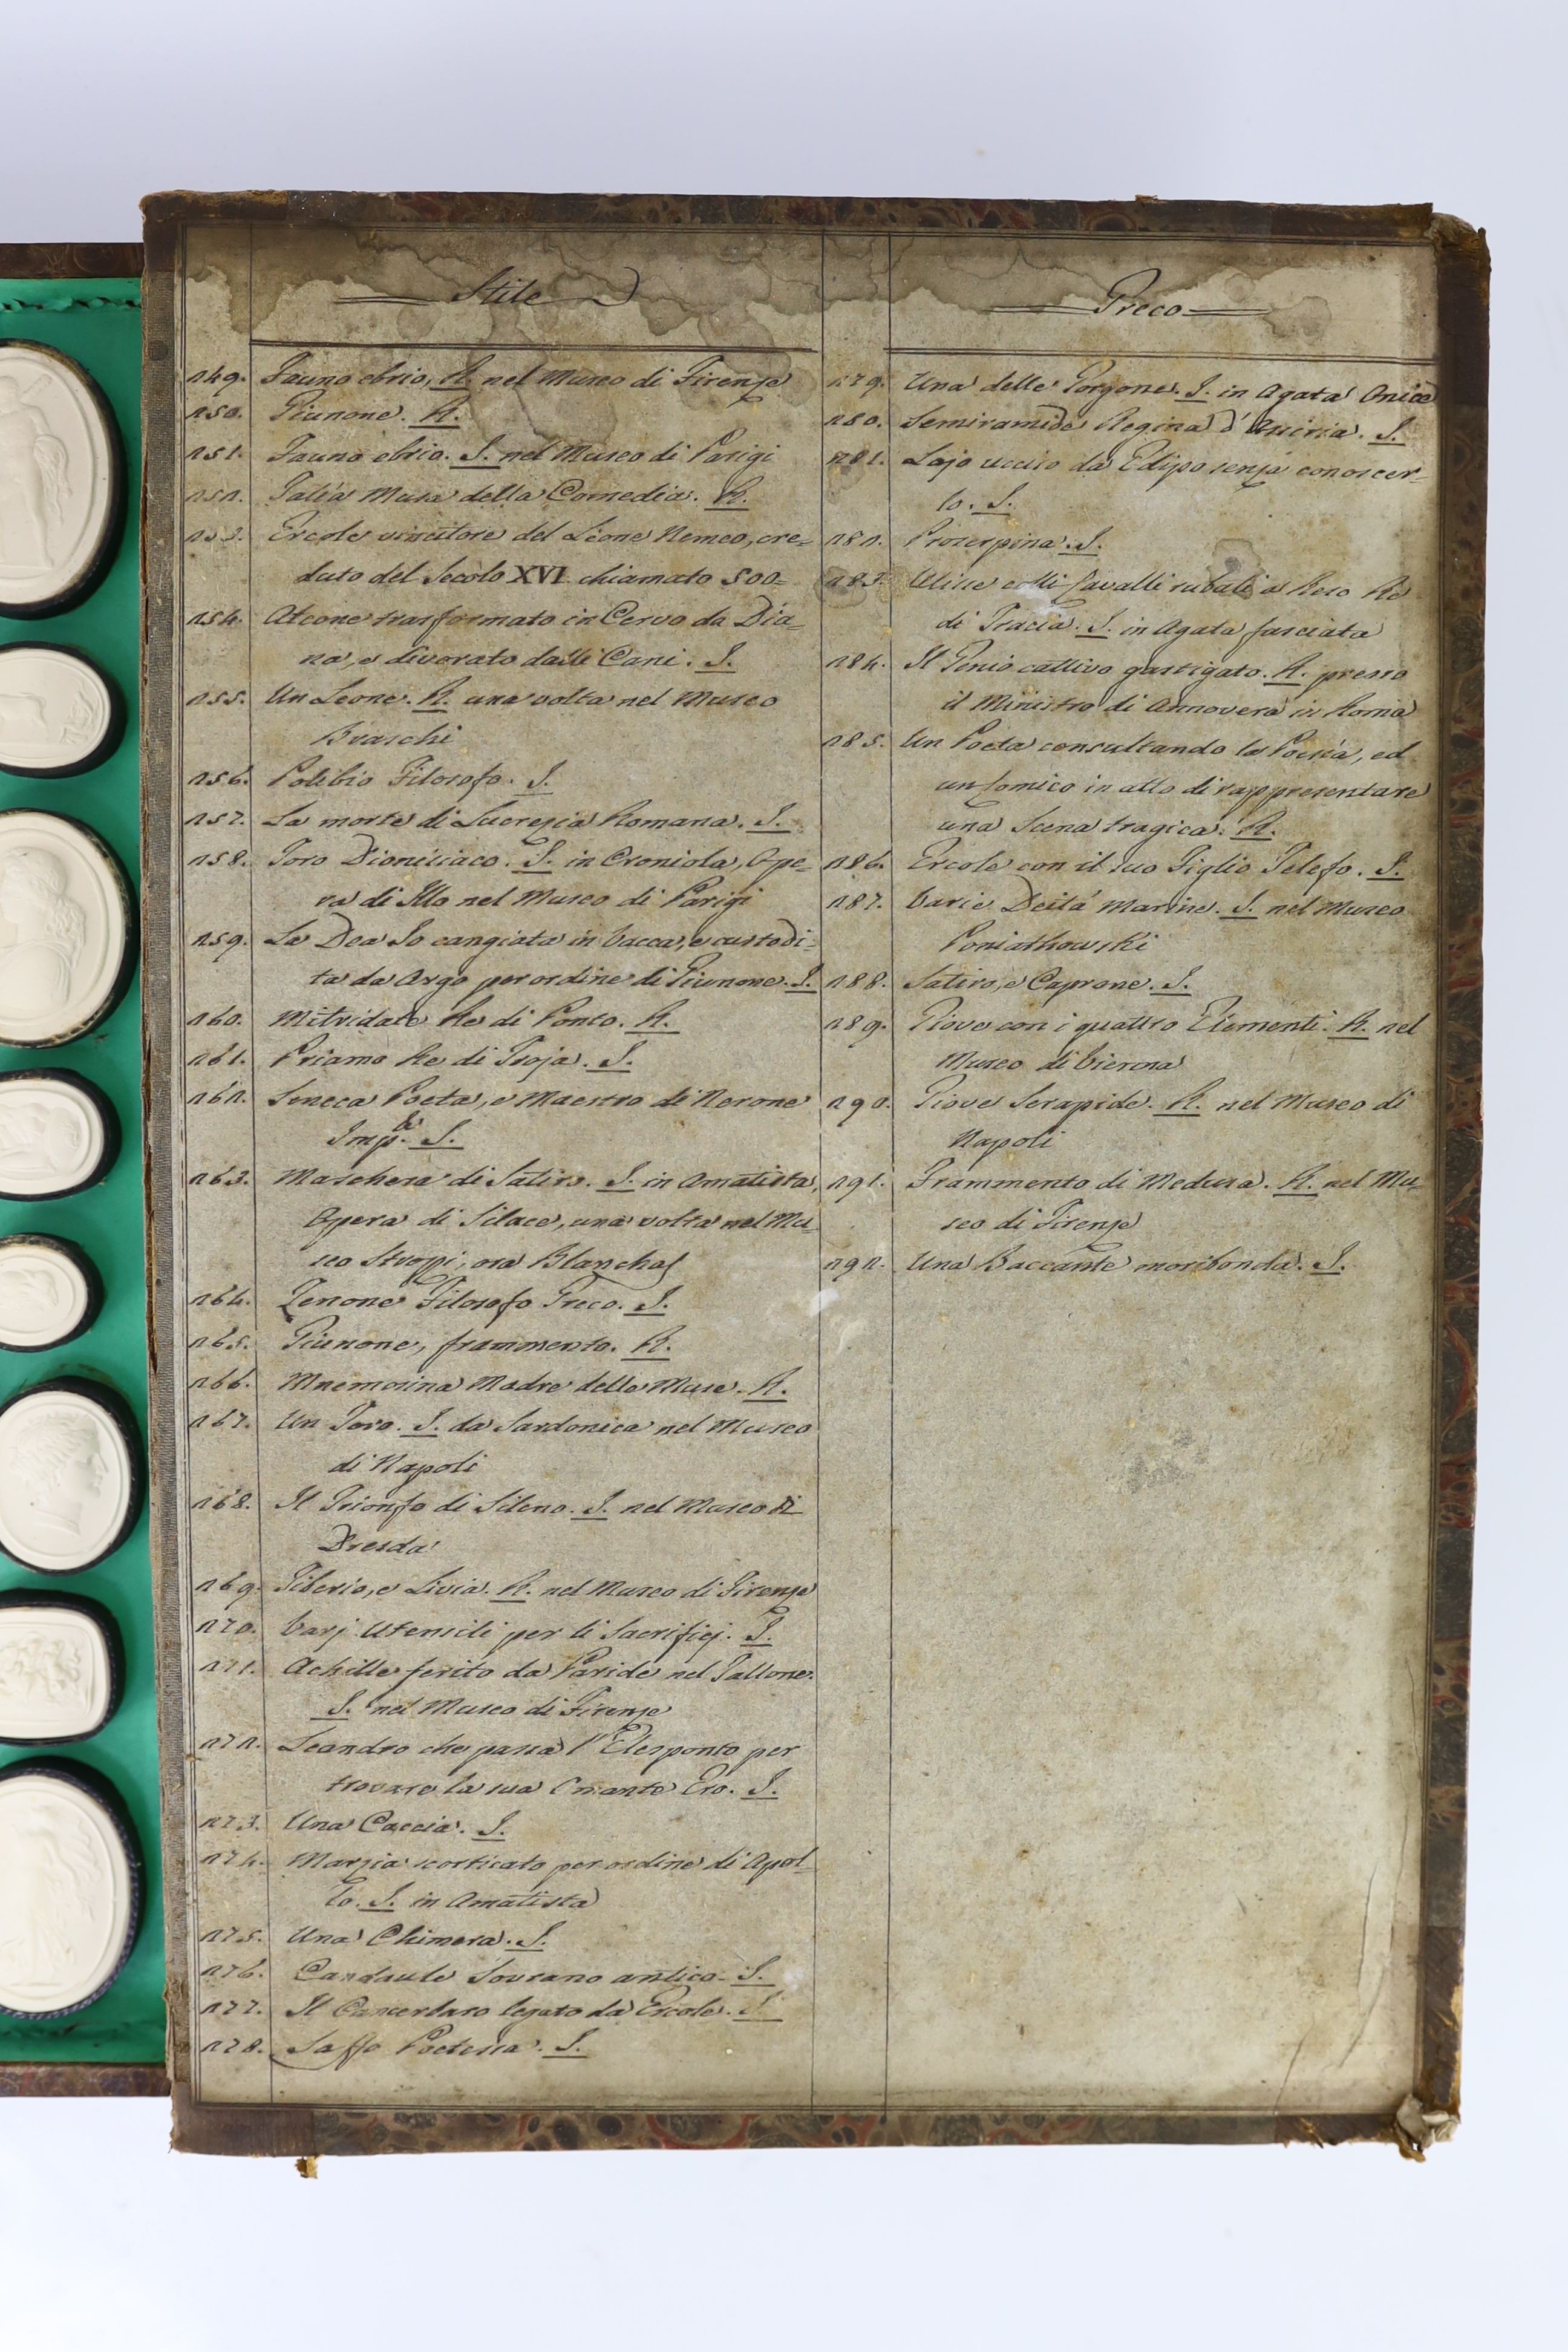 Stile
249. Fauno ebrio, R. nel Museo di Firenze
250. Giunone. R.
251. Fauno ebrio. I. nel Museo di Parigi
252. Talía Musa della Comedia. R.
253. Ercole vincitore del Leone Nemeo, cre=
duto del Secolo XVI chiamato 500=
254. Ateone trasformato in Cervo da Dia=
na, e divorato dalli Cani. I.
255. Un Leone. R. una volta nel Museo
Braschi
256. Polibio Filosofo. I.
257. La morte di Lucrezia Romana. I.
258. Toro Dionisiaco. I. in Croniola, Ope=
ra di Illo nel Museo di Parigi
259. La Dea Io cangiata in Vacca, e custodi=
ta da Argo per ordine di Giunone. I.
260. Mitridate Re di Ponto. R.
261. Priamo Re di Troja. I.
262. Seneca Poeta, e Maestro di Nerone
Imp.e I.
263. Maschera di Satiro. I. in Amatista,
Opera di Silace, una volta nel Mu=
seo Strozzi, ora Blanchas
264. Zenone Filosofo Greco. I.
265. Giunone, frammento. R.
266. Mnemosina Madre delle Muse. R.
267. Un Toro. I. da Sardonica nel Museo
di Napoli
268. Il Trionfo di Sileno. I. nel Museo di
Dresda
269. Tiberio, e Livia. R. nel Museo di Firenze
270. Varj Utensili per li Sacrificj. I.
271. Achille ferito da Paride nel Tallone.
I. nel Museo di Firenze
272. Leandro che passa l'Elesponto per
trovare la sua Amante Ero. I.
273. Una Caccia. I.
274. Marzia scorticato per ordine di Apol=
lo. I. in Amatista
275. Una Chimera. I.
276. Candaule Sovrano antico. I.
277. Il Cancerbaro legato da Ercole. I.
278. Saffo Poetessa. I.
Greco
279. Una delle Gorgone. I. in Agata Onice
280. Semiramide Regina d'Assiria. I.
281. Lajo ucciso da Edipo senza conoscer=
lo. I.
282. Proserpina. I.
283. Ulisse colli Cavalli rubati a Reso Re
di Tracia. I. in Agata fasciata
284. Il Genio cattivo gastigato. R. presso
il Ministro di Annovera in Roma
285. Un Poeta consultando la Poesía, ed
un Comico in atto di rappresentare
una Scena tragica. R.
286. Ercole con il suo Figlio Telefo. I.
287. Varie Deitá Marine. I. nel Museo
Poniathowski
288. Satiro, e Caprone. I.
289. Giove con i quattro Elementi. R. nel
Museo di Vienna
290. Giove Serapide. R. nel Museo di
Napoli
291. Frammento di Medusa. R. nel Mu=
seo di Firenze
292. Una Baccante moribonda. I.